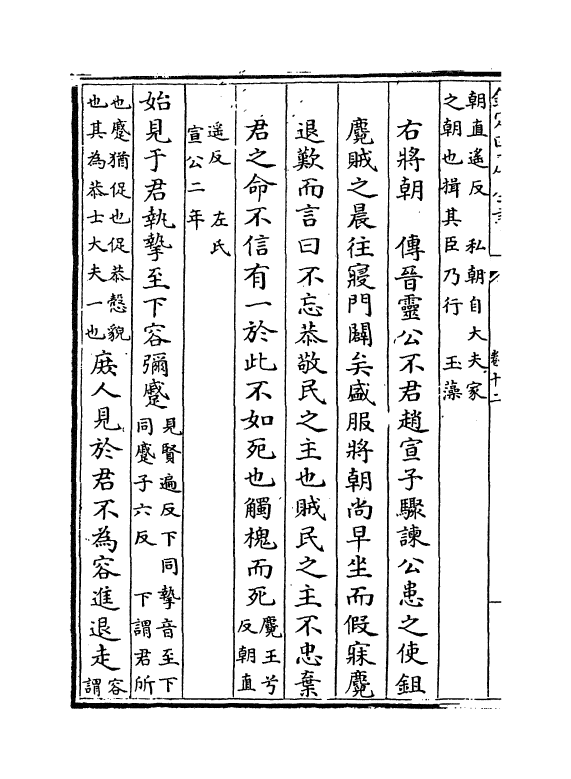 朝直遙反　私朝自大夫家
之朝也揖其臣乃行　玉藻
右將朝　傳晉靈公不君趙宣子驟諫公患之使鉏
麑賊之晨往寢門闢矣盛服將朝尚早坐而假寐麑
退歎而言曰不忘恭敬民之主也賊民之主不忠棄
君之命不信有一於此不如死也觸槐而死麑王兮
反朝直
遥反　左氏
宣公二年
始見于君執摯至下容彌蹙見賢遍反下同摯音至下
同蹙子六反　下謂君所
也蹙猶促也促恭慤貌
也其為恭士大夫一也庶人見於君不為容進退走容
謂
卷十二